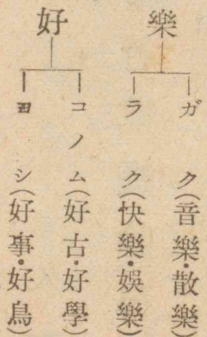 樂
ガク(音樂・散樂)
ラク(快樂・娯樂)
好
コノム(好古好學)
ヨシ(好事・好鳥)